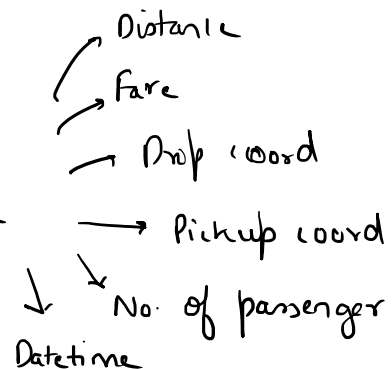 Distance
Fare
Drop coord
Pickup coord
No. of passenger
Datetime